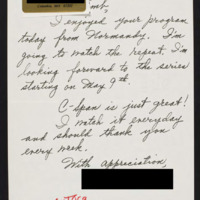 mb,
I enjoyed your program
today from Normandy. I'm
going to watch the repeat. I'm
looking forward to the series
starting on May 9th.
C-span is just great!
I watch it everyday
and should thank you
every week.
With appreciation,